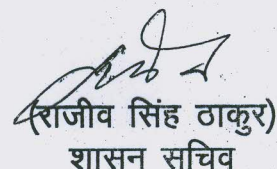 (राजीव सिंह ठाकुर)
शासन सचिव